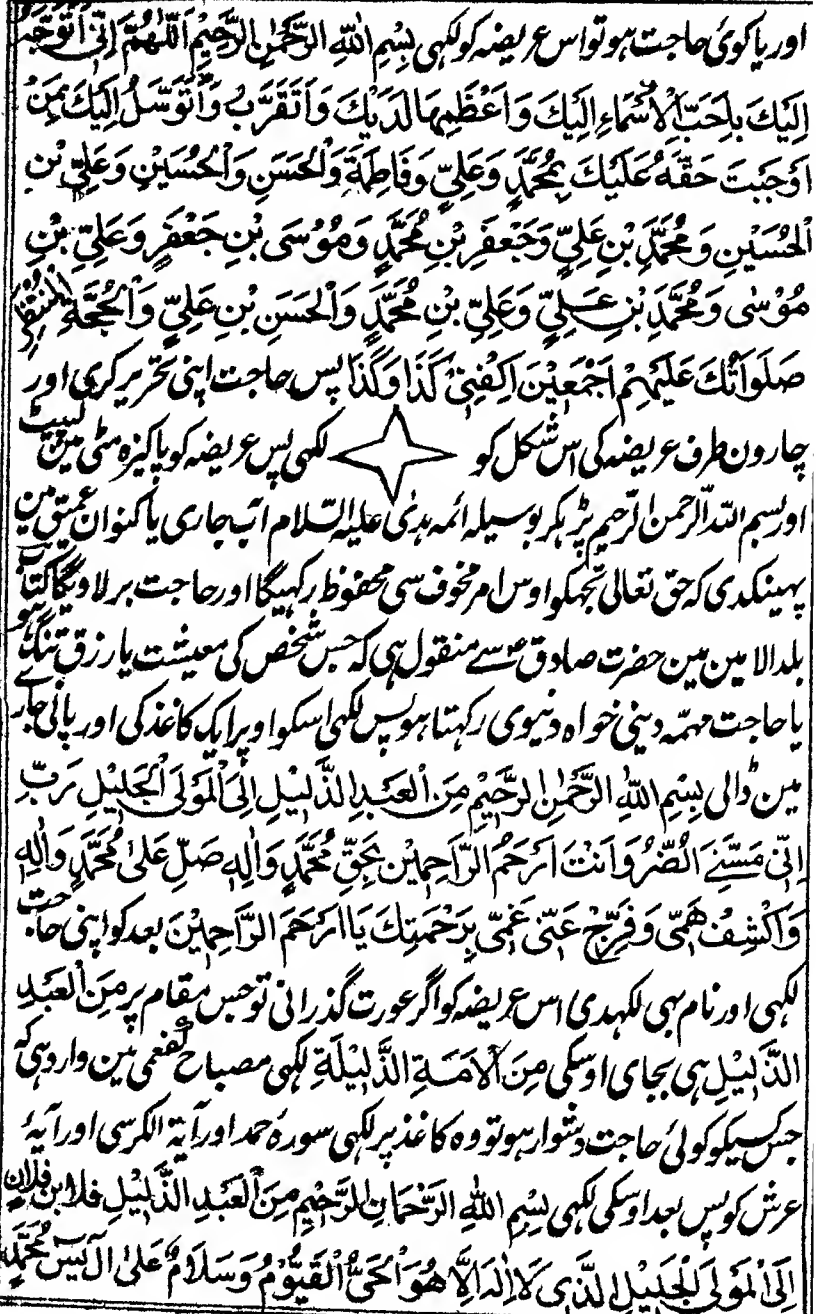 اور یا کوئ حاجت ہو تو اس عریضہ کو لکہی بِسْمِ اللهِ الرَّحْمٰنِ الرَّحِيْمِ اَللّٰهُمَّ اِنِّىْ اَتَوَجَّهُ
اِلَيْكَ بِاَحَبِّ الْاَسْمَاءِ اِلَيْكَ وَاَعْظَمِهَا لَدَيْكَ وَاَتَقَرَّبُ وَاَتَوَسَّلُ اِلَيْكَ بِمَنْ
اَوْجَبْتَ حَقَّهُ عَلَيْكَ بِمُحَمَّدٍ وَعَلِيٍّ وَفَاطِمَةَ وَالْحَسَنِ وَالْحُسَيْنِ وَعَلِيِّ بْنِ
الْحُسَيْنِ وَمُحَمَّدِ بْنِ عَلِيٍّ وَجَعْفَرِ بْنِ مُحَمَّدٍ وَمُوْسَى بْنِ جَعْفَرٍ وَعَلِيِّ بْنِ
مُوْسٰى وَمُحَمَّدِ بْنِ عَلِيٍّ وَعَلِيِّ بْنِ مُحَمَّدٍ وَالْحَسَنِ بْنِ عَلِيٍّ وَالْحُجَّةِ الْمُنْتَظَرِ
صَلَوَاتُكَ عَلَيْهِمْ اَجْمَعِيْنَ اِكْفِنِىْ كَذَا وَكَذَا پس حاجت اپنی تحریر کری اور
چارون طرف عریضہ کی اس شکل کو لکہی پس عریضہ کو پاکیزہ مٹی مین لپیٹ
اور بسم اللہ الرحمن الرحیم پڑہکر بوسیلہ ائمہ ہدی علیہ السلام آب جاری یا کنوان عمیق مین
پہینکدی کہ حق تعالی تجہکو اوس امر مخوف سی محفوظ رکہیگا اور حاجت بر لاویگا کتاب
بلد الامین مین حضرت صادق ع سے منقول ہی کہ جس شخص کی معیشت یا رزق تنگ ہو
یا حاجت مہمہ دینی خواہ دنیوی رکہتا ہو پس لکہی اسکو اوپر ایک کاغذ کی اور پانی جار
مین ڈالی بِسْمِ اللهِ الرَّحْمٰنِ الرَّحِيْمِ مِنَ الْعَبْدِ الذَّلِيْلِ اِلَى الْمَوْلَى الْجَلِيْلِ رَبِّ
اِنِّىْ مَسَّنِىَ الضُّرُّ وَاَنْتَ اَرْحَمُ الرَّاحِمِيْنَ بِحَقِّ مُحَمَّدٍ وَاٰلِهٖ صَلِّ عَلٰى مُحَمَّدٍ وَاٰلِهٖ
وَاكْشِفْ هَمِّىْ وَفَرِّجْ عَنِّىْ غَمِّىْ بِرَحْمَتِكَ يَا اَرْحَمَ الرَّاحِمِيْنَ بعد کو اپنی حاجت
لکہی اور نام بہی لکہدی اس عریضہ کو اگر عورت گذرانی تو جس مقام پر مِنَ الْعَبْدِ
الذَّلِيْلِ ہی بجای اوسکی مِنَ الْاَمَةِ الذَّلِيْلَةِ لکہی مصباح کفعمی مین وارد ہی کہ
جس کسیکو کوئی حاجت دشوار ہو تو وہ کاغذ پر لکہی سورۂ حمد اور آیۃ الکرسی اور آیۂ
عرش کو پس بعد اوسکی لکہی بِسْمِ اللهِ الرَّحْمَانِ الرَّحِيْمِ مِنَ الْعَبْدِ الذَّلِيْلِ فلان ابن فلان
اِلَى الْمَوْلَى الْجَلِيْلِ الَّذِىْ لَا اِلٰهَ اِلَّا هُوَ الْحَىُّ الْقَيُّوْمُ وَسَلَامٌ عَلٰى اٰلِ يٰسٓ مُحَمَّدٍ